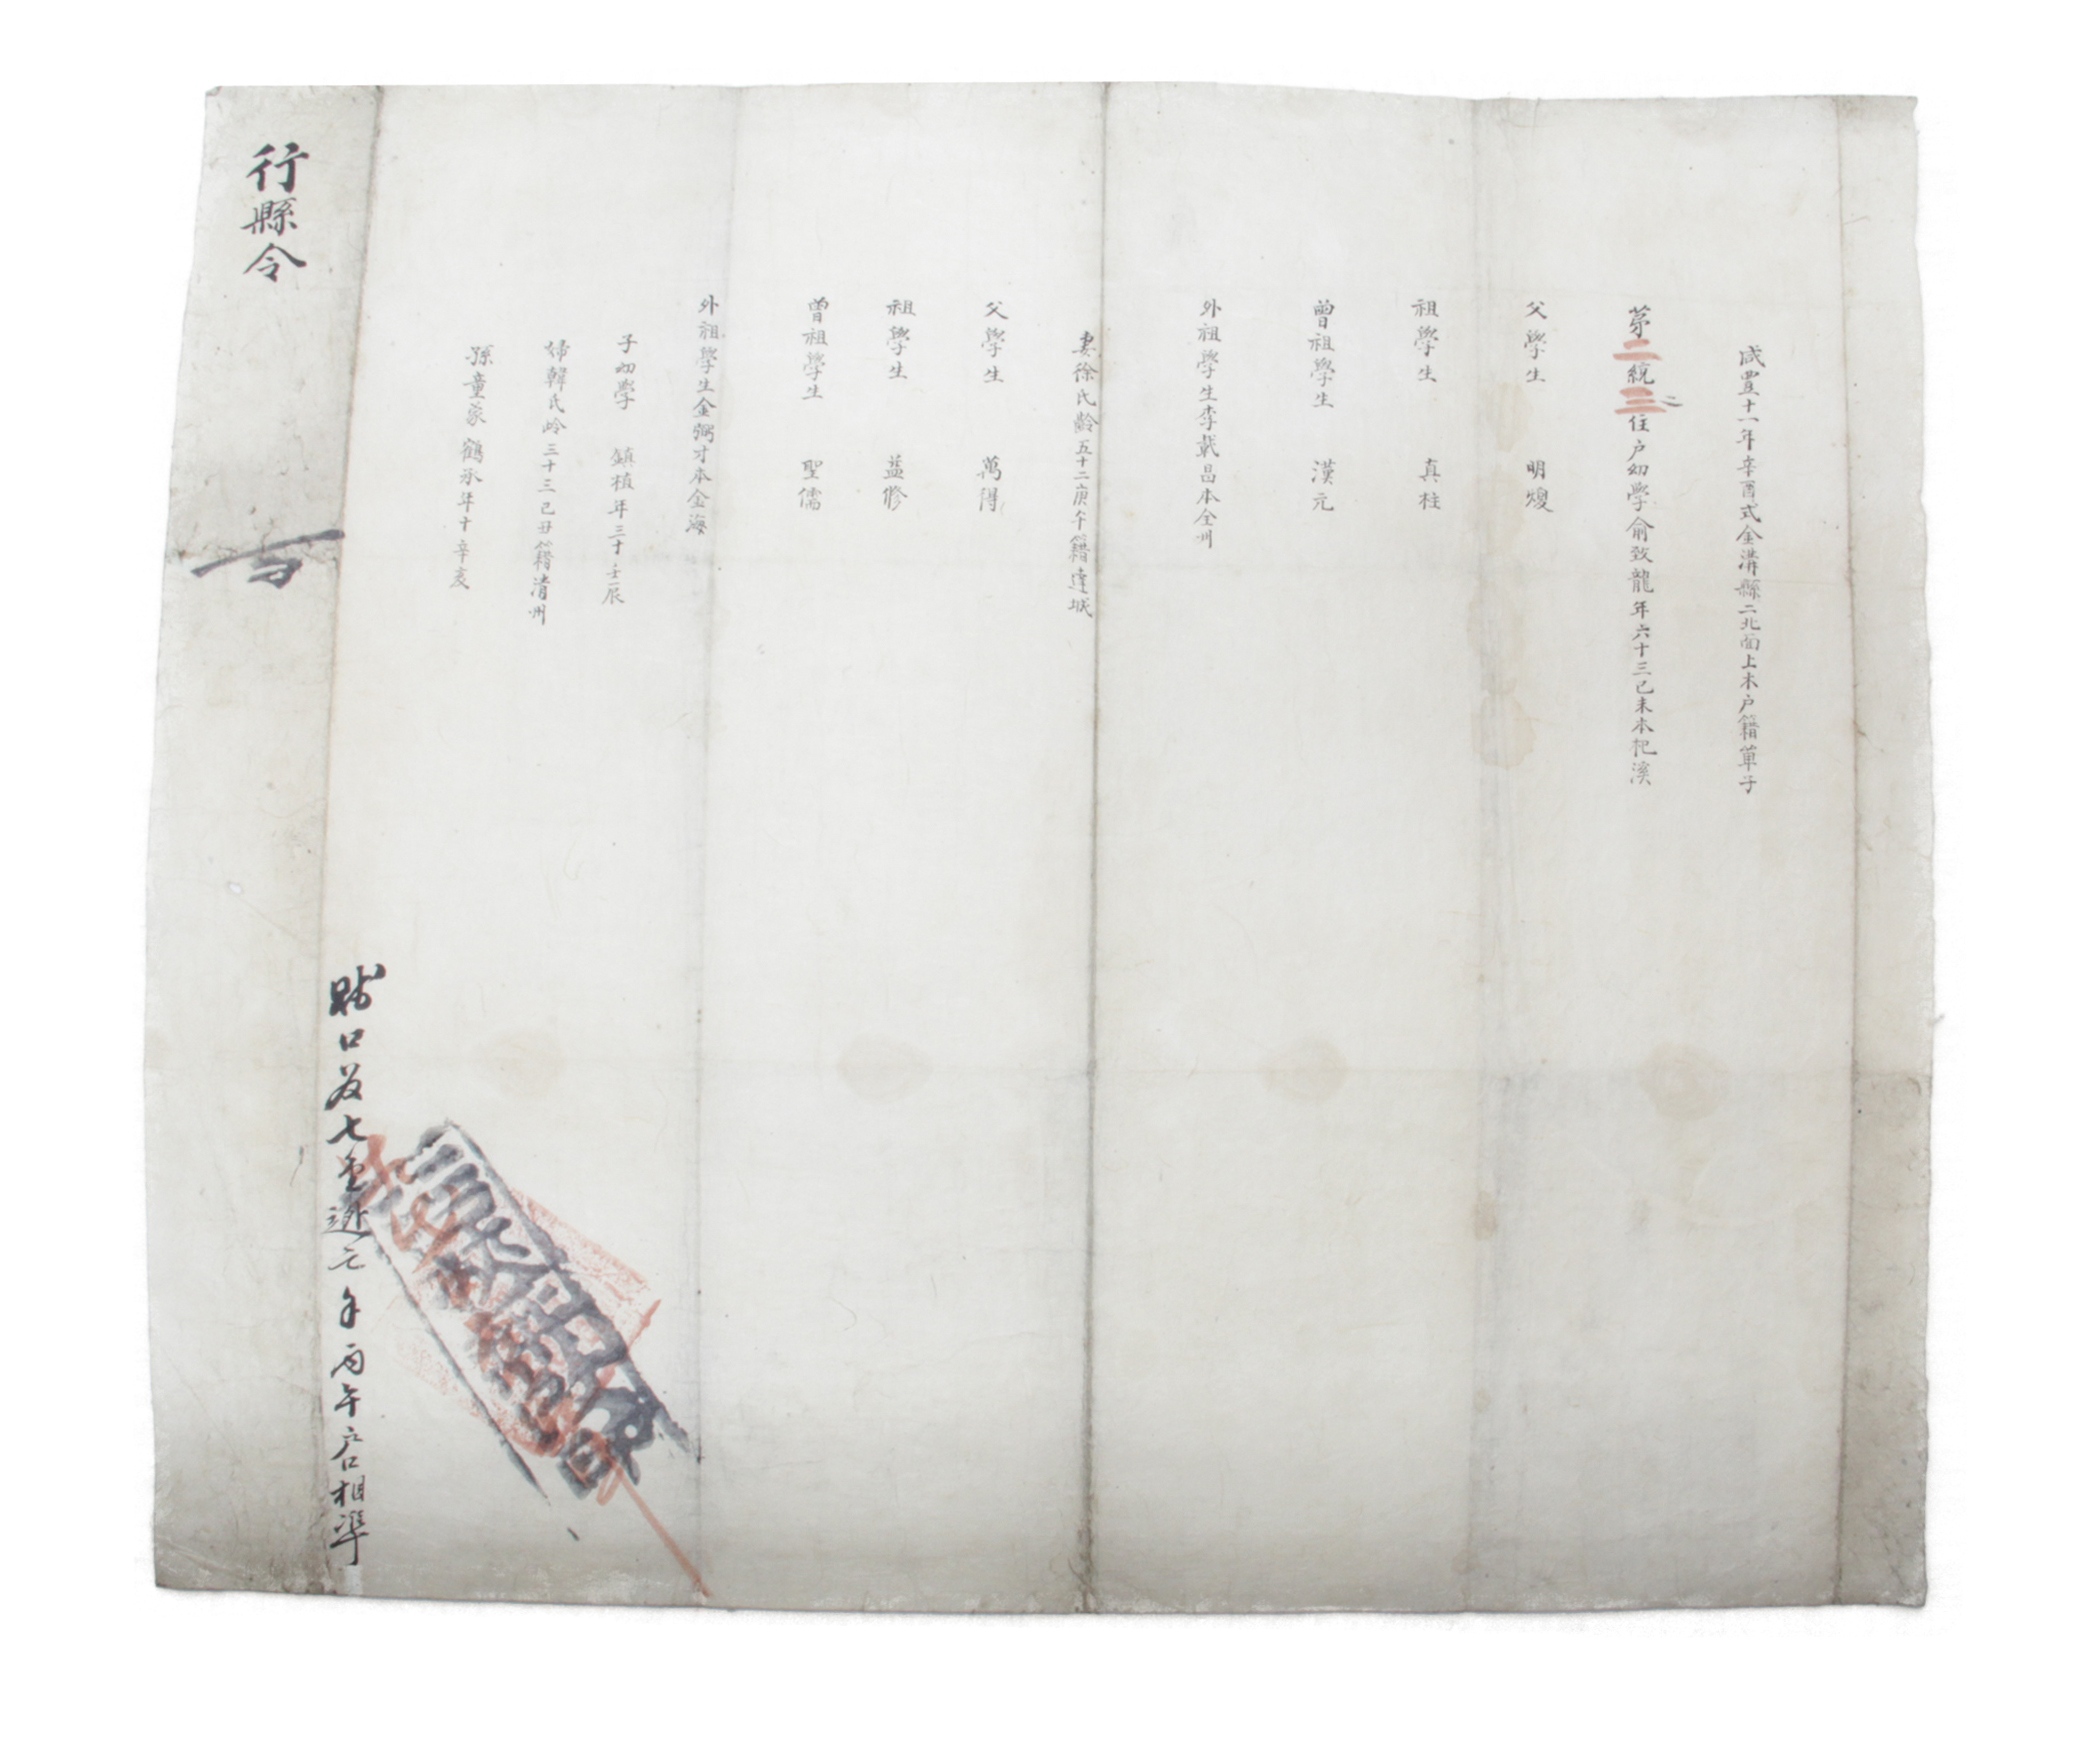 咸豊十一年辛酉式金溝縣二北面上木戸籍單子
苐二統三住戸幼學俞致龍年六十三己未本杞溪
父學生 明煥
祖學生 真柱
曽祖學生 漢元
外祖學生李載昌本全州
妻徐氏齡五十二庚午籍達城
父學生 萬得
祖學生 益修
曽祖學生 聖儒
外祖學生金弼才本金海
子幼學 鎮植年三十壬辰
婦韓氏齡三十三己丑籍清州
孫童蒙 鶴承年十辛亥
行縣令
口 七 午 丙午戶口相準